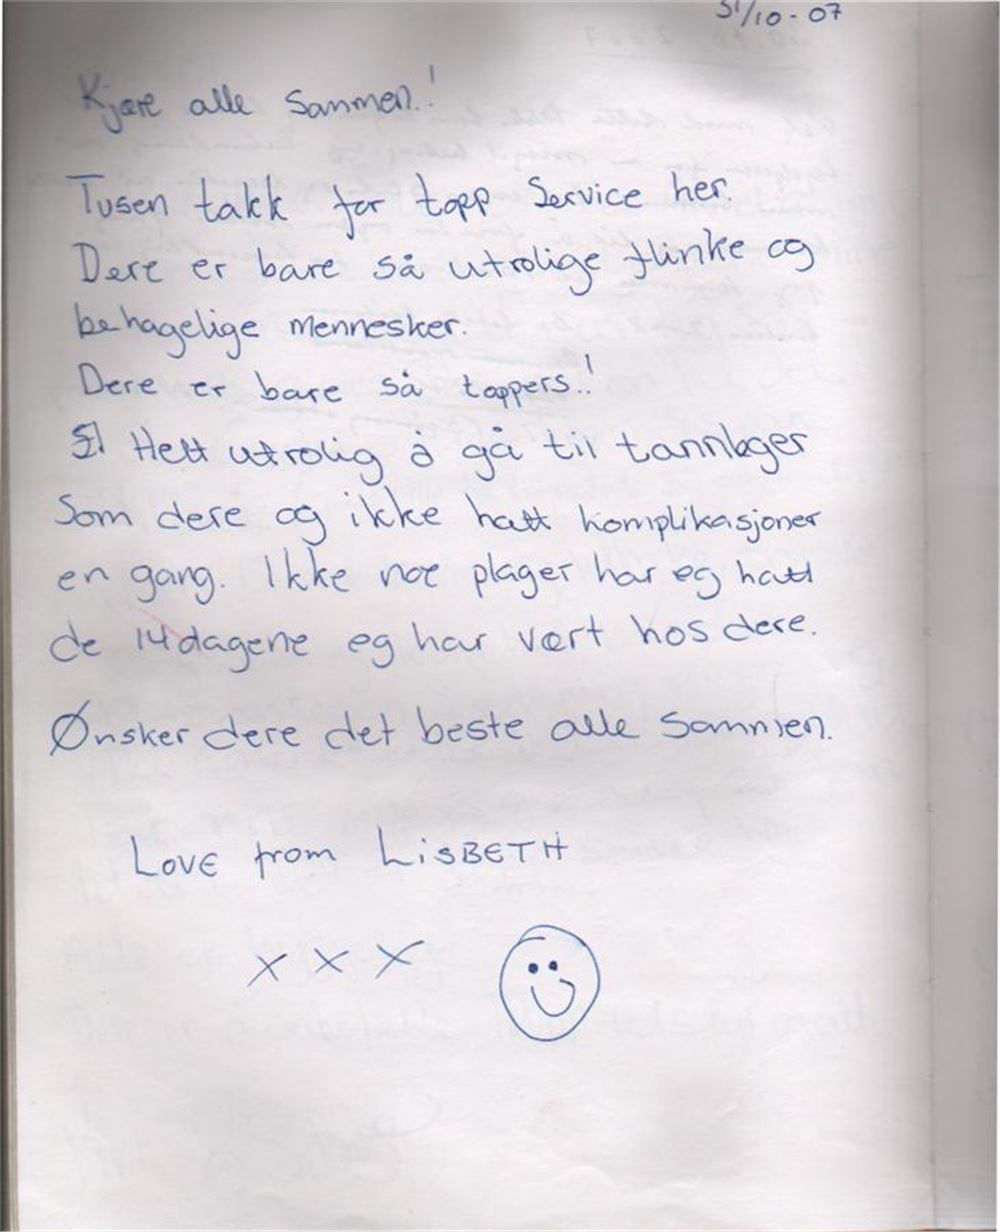 31/10-07
Kjære alle sammen.!
Tusen takk for topp Service her.
Dere er bare så utrolige flinke og
behagelige mennesker.
Dere er bare så toppers.!
Helt utrolig å gå til tannlæger
Som dere og ikke hatt komplikasjoner
en gang. Ikke noe plager har eg hatt
de 14 dagene eg har vært hos dere.
Ønsker dere det beste alle Sammen.
LOVE from LiSBETH
x x x